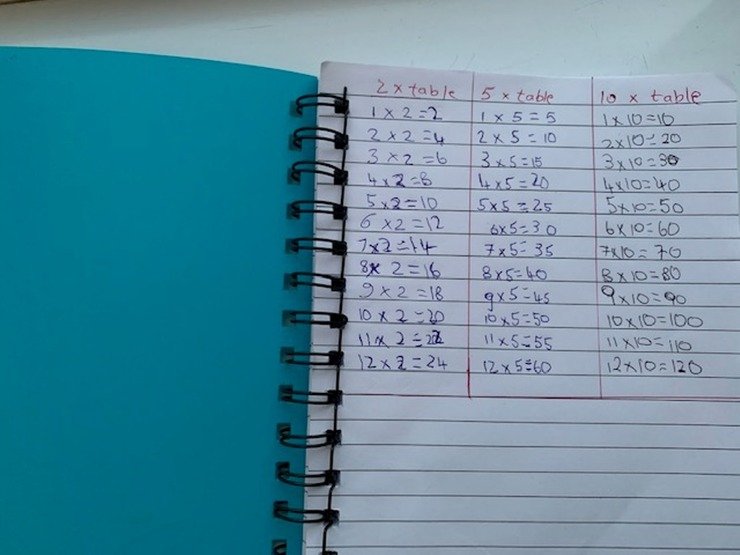 2 x table 5 x table 10 x table
1 x 2 = 2 1 x 5 = 5 1 x 10 = 10
2 x 2 = 4 2 x 5 = 10 2x10 = 20
3 x 2 = 6 3 x 5 = 15 3x10 = 30
4 x 2 = 8 4x5 = 20 4x10=40
5 x 2 = 10 5x5 = 25 5x10=50
6 x 2 = 12 6x5=30 6x10=60
7x2=14 7x5= 35 7x10= 70
8x 2=16 8x5=40 8x10=80
9 x 2 = 18 9x5=45 9x10=90
10 x 2 = 20 10x5=50 10x10=100
11x 2 = 22 11x5=55 11x10= 110
12 x 2 = 24 12x5=60 12x10=120